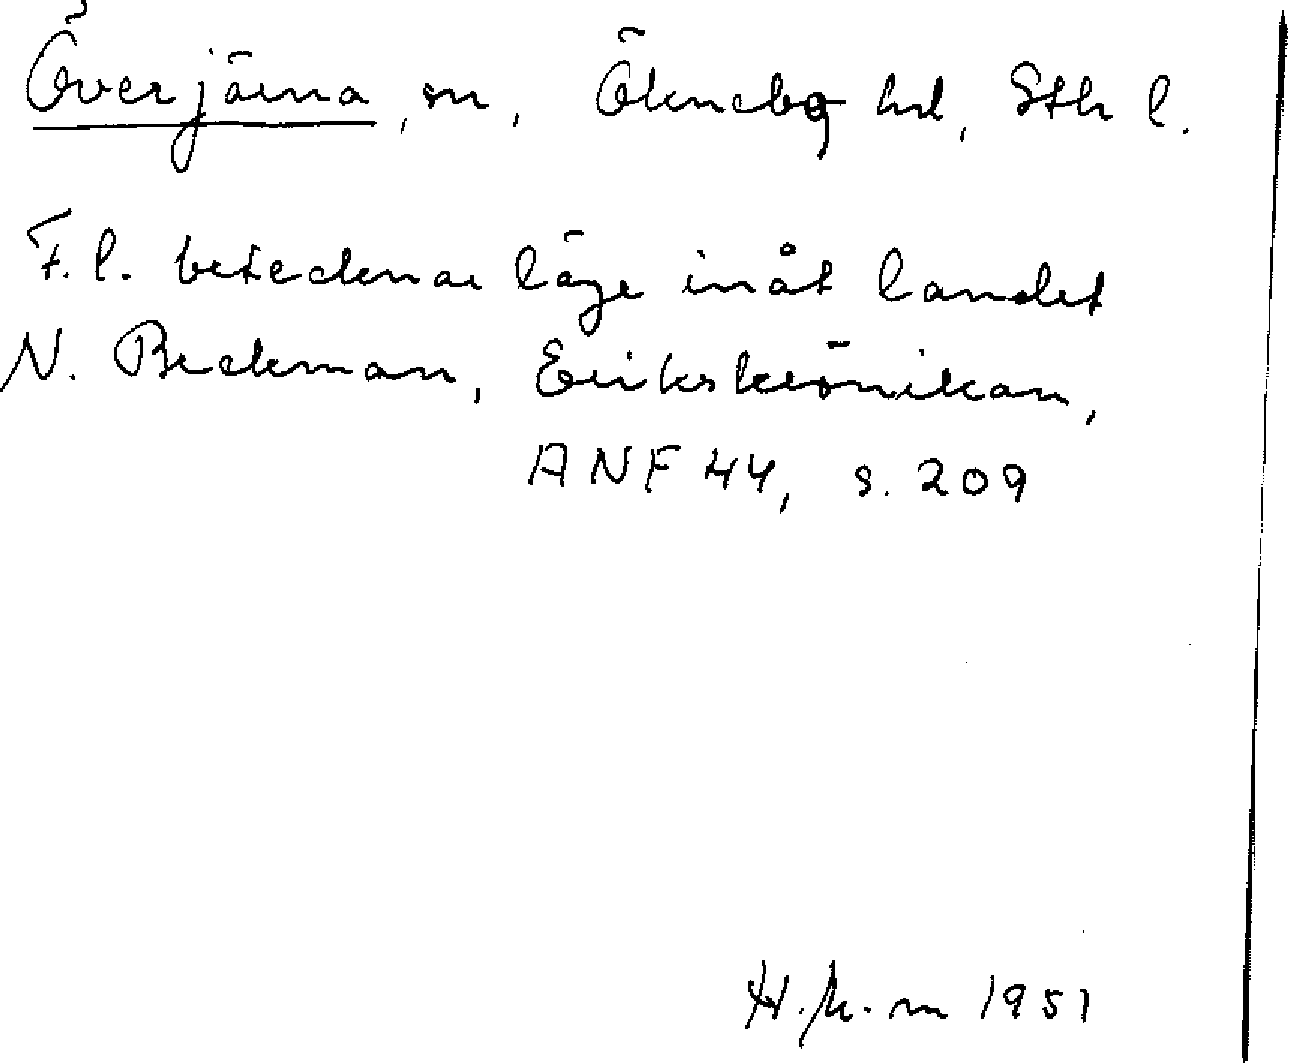 Överjärna, sn, Öknebo hd, Sth l.
F.l. betecknar läge inåt landet
N. Beckman, Erikskrönikan,
ANF 44, s. 209
1951